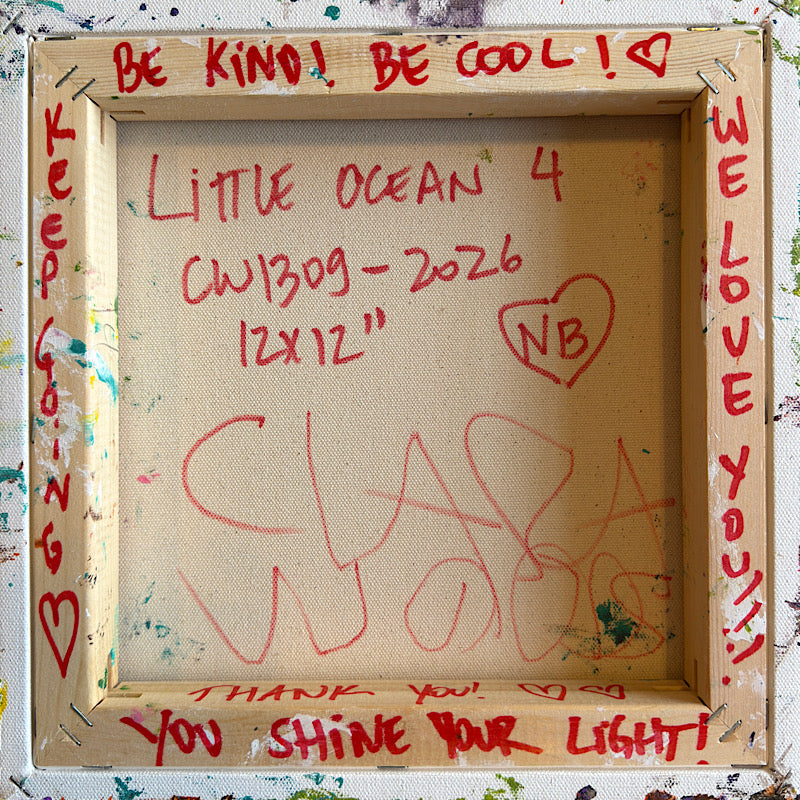 BE KIND! BE COOL!
KeeP GOiNG
WE LOVE YOU!!!
LiTTLE OCEAN 4
CW1309-2026
12x12"
NB
CLARA
WOODS
THANK YOU!
YOU SHiNE YOUR LiGHT!